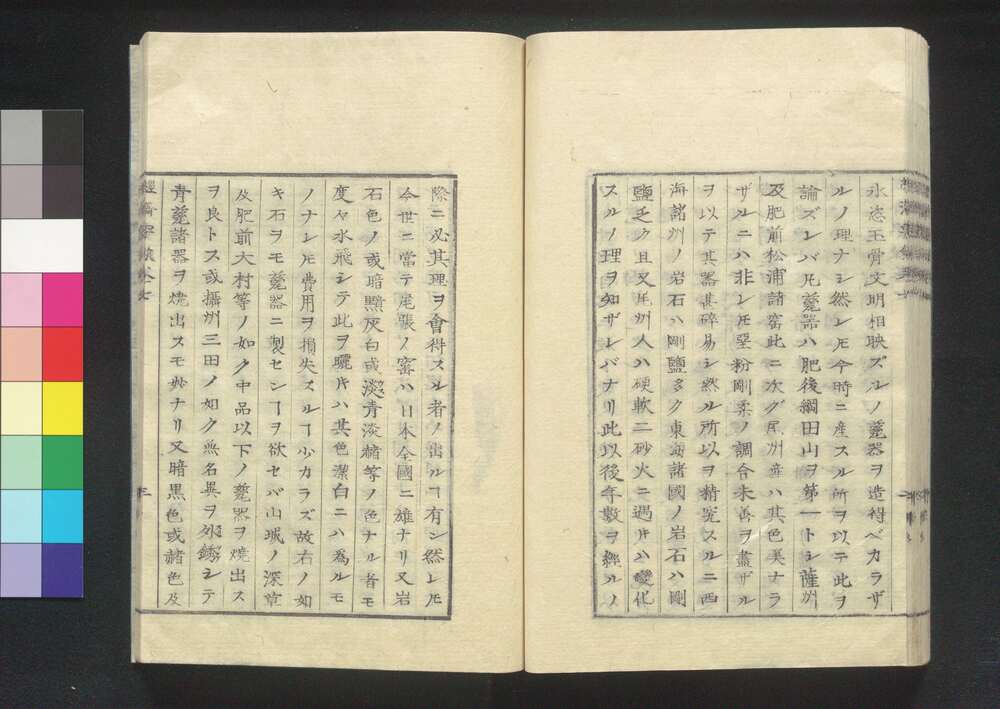 氷姿玉骨文明相映ズルノ甆器ヲ造得ベカラザ
ルノ理ナシ然レ𪜈今時ニ産スル所ヲ以テ此ヲ
論ズレバ凡甆器ハ肥後綱田山ヲ第一トシ薩州
及肥前松浦諸窑此ニ次グ尾州産ハ其色美ナラ
ザルニハ非レ𪜈堊粉剛柔ノ調合未善ヲ盡ザル
ヲ以テ其器甚碎易シ然ル所以ヲ精究スルニ西
海諸州ノ岩石ハ剛鹽多ク東海諸國ノ岩石ハ剛
鹽乏ク且又尾州人ハ硬軟二砂火ニ遇𪜈ハ變化
スルノ理ヲ知ザレバナリ此以後年數ヲ經ルノ
際ニ必其理ヲ會得スル者ノ出ルヿ有ン然レ𪜈
今世ニ當テ尾張ノ窑ハ日本全國ニ雄ナリ又岩
石色ノ或暗黯灰白或淡青淡赭等ノ色ナル者モ
度々水飛シテ此ヲ曬片ハ其色潔白ニハ爲ルモ
ノナレ𪜈費用ヲ損失スルヿ少カラズ故右ノ如
キ石ヲモ甆器ニ製センヿヲ欲セバ山城ノ深草
及肥前大村等ノ如ク中品以下ノ甆器ヲ燒出ス
ヲ良トス或攝州三田ノ如ク無名異ヲ外銹シテ
青甆諸器ヲ燒出スモ妙ナリ又暗黒色或赭色及
經濟要錄卷七